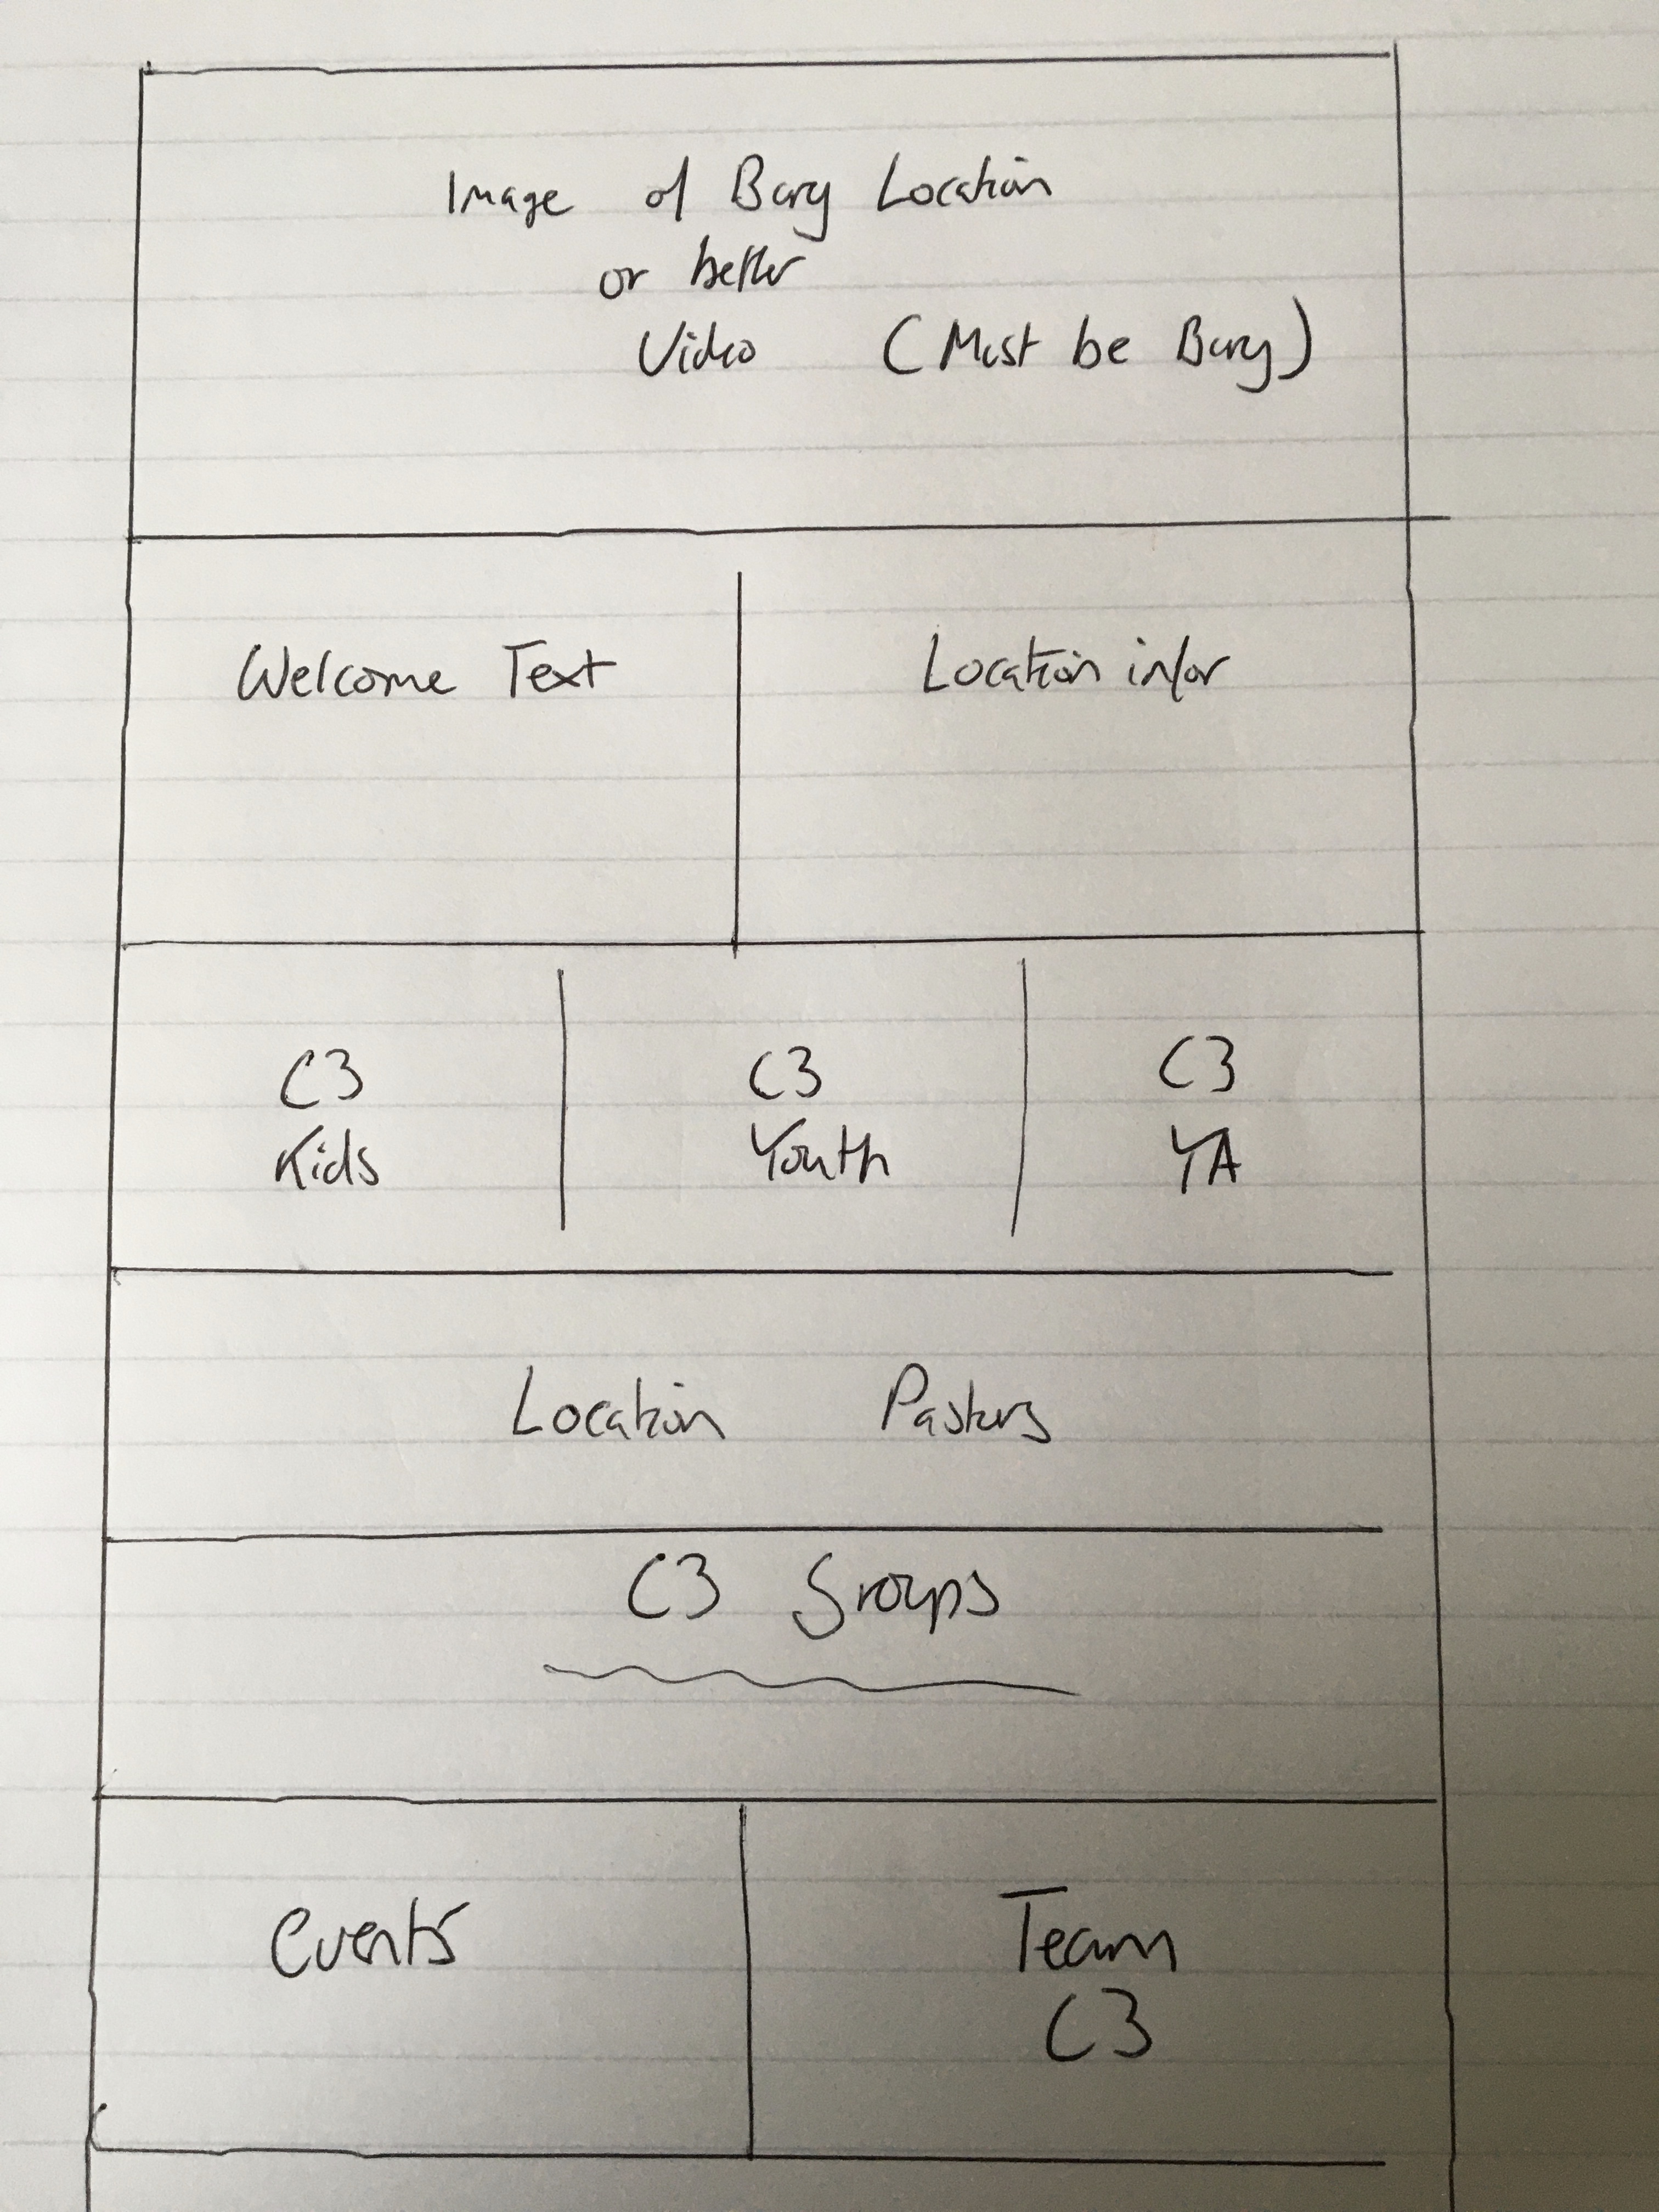 Image of Bury Location
or better
Video (Must be Bury)
Welcome Text
Location infor
C3
Kids
C3
Youth
C3
YA
Location Pastors
C3 Groups
Events
Team
C3